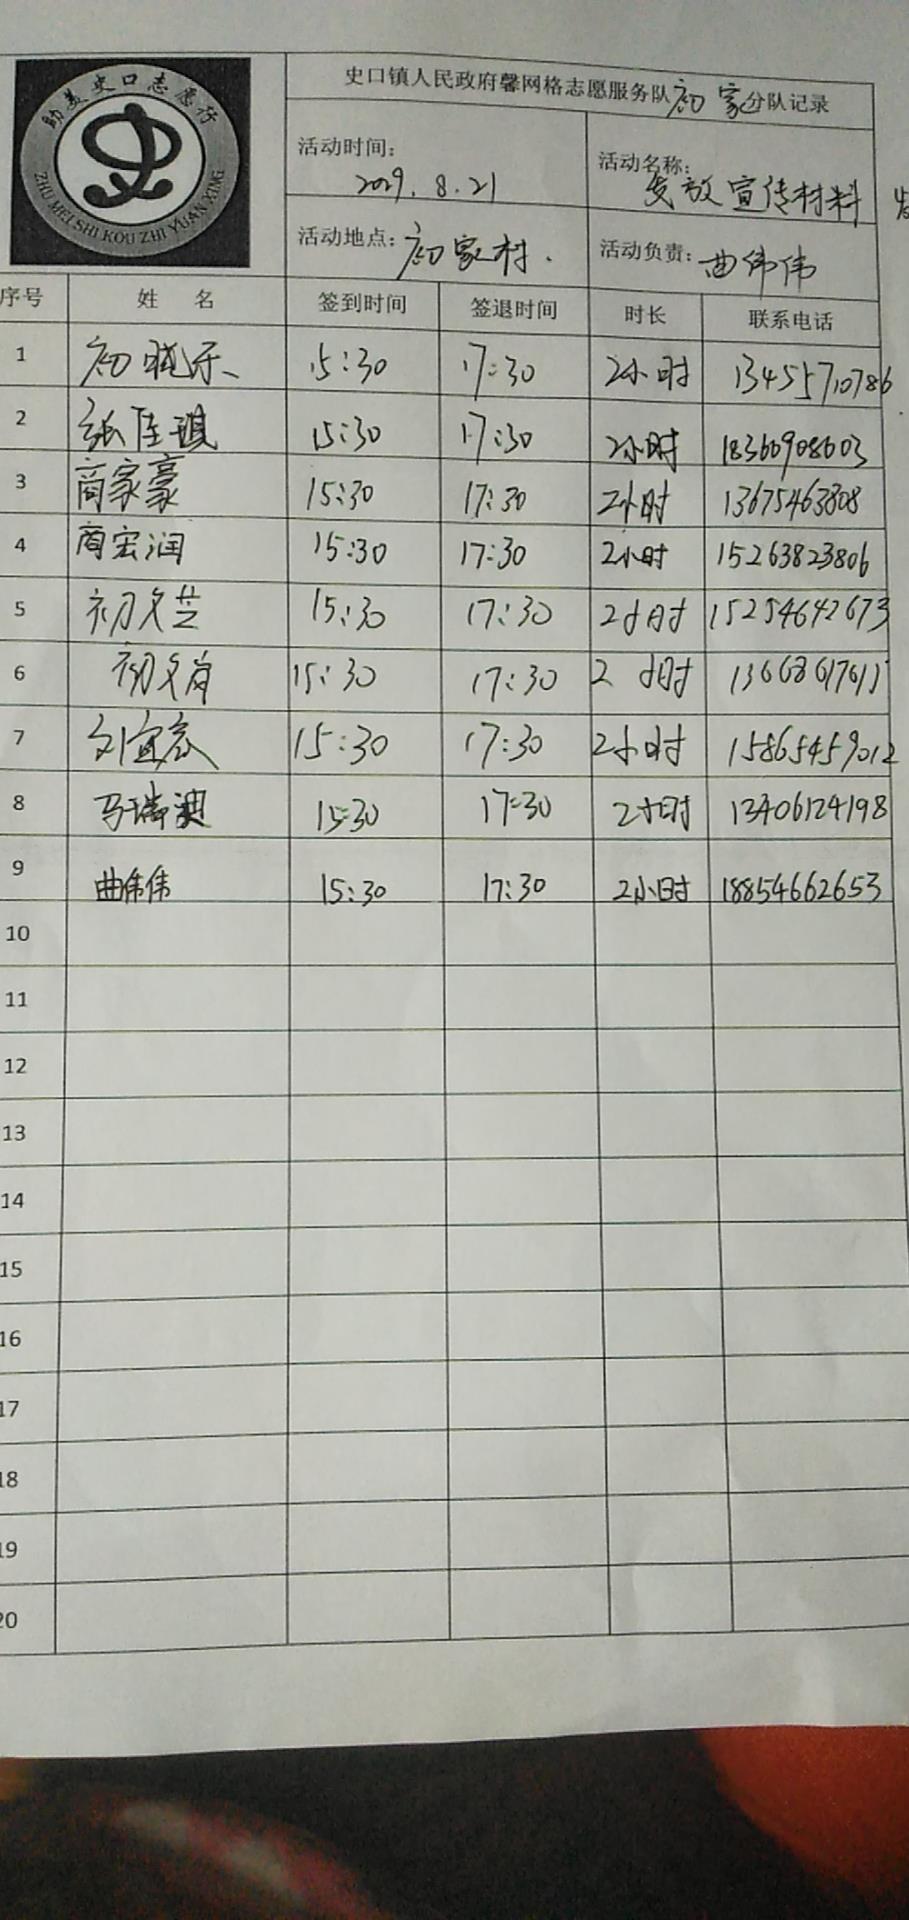 助美史口志愿行
ZHU MEI SHI KOU ZHI YUAN XING
史口镇人民政府馨网格志愿服务队初家分队记录
活动时间：
2019.8.21
活动名称：
发放宣传材料
活动地点：初家村.
活动负责：曲伟伟
序号 姓 名 签到时间 签退时间 时长 联系电话
1 初晓乐 15:30 17:30 2小时 13455710786
2 张佳琪 15:30 17:30 2小时 18360908603
3 商家豪 15:30 17:30 2小时 13675463808
4 商宏润 15:30 17:30 2小时 15263823806
5 初文芝 15:30 17:30 2小时 15254642673
6 初文 15:30 17:30 2小时
7 刘宜宸 15:30 17:30 2小时 15865459012
8 马瑞迪 15:30 17:30 2小时 13406124198
9 曲伟伟 15:30 17:30 2小时 18854662653
10
11
12
13
14
15
16
17
18
19
20